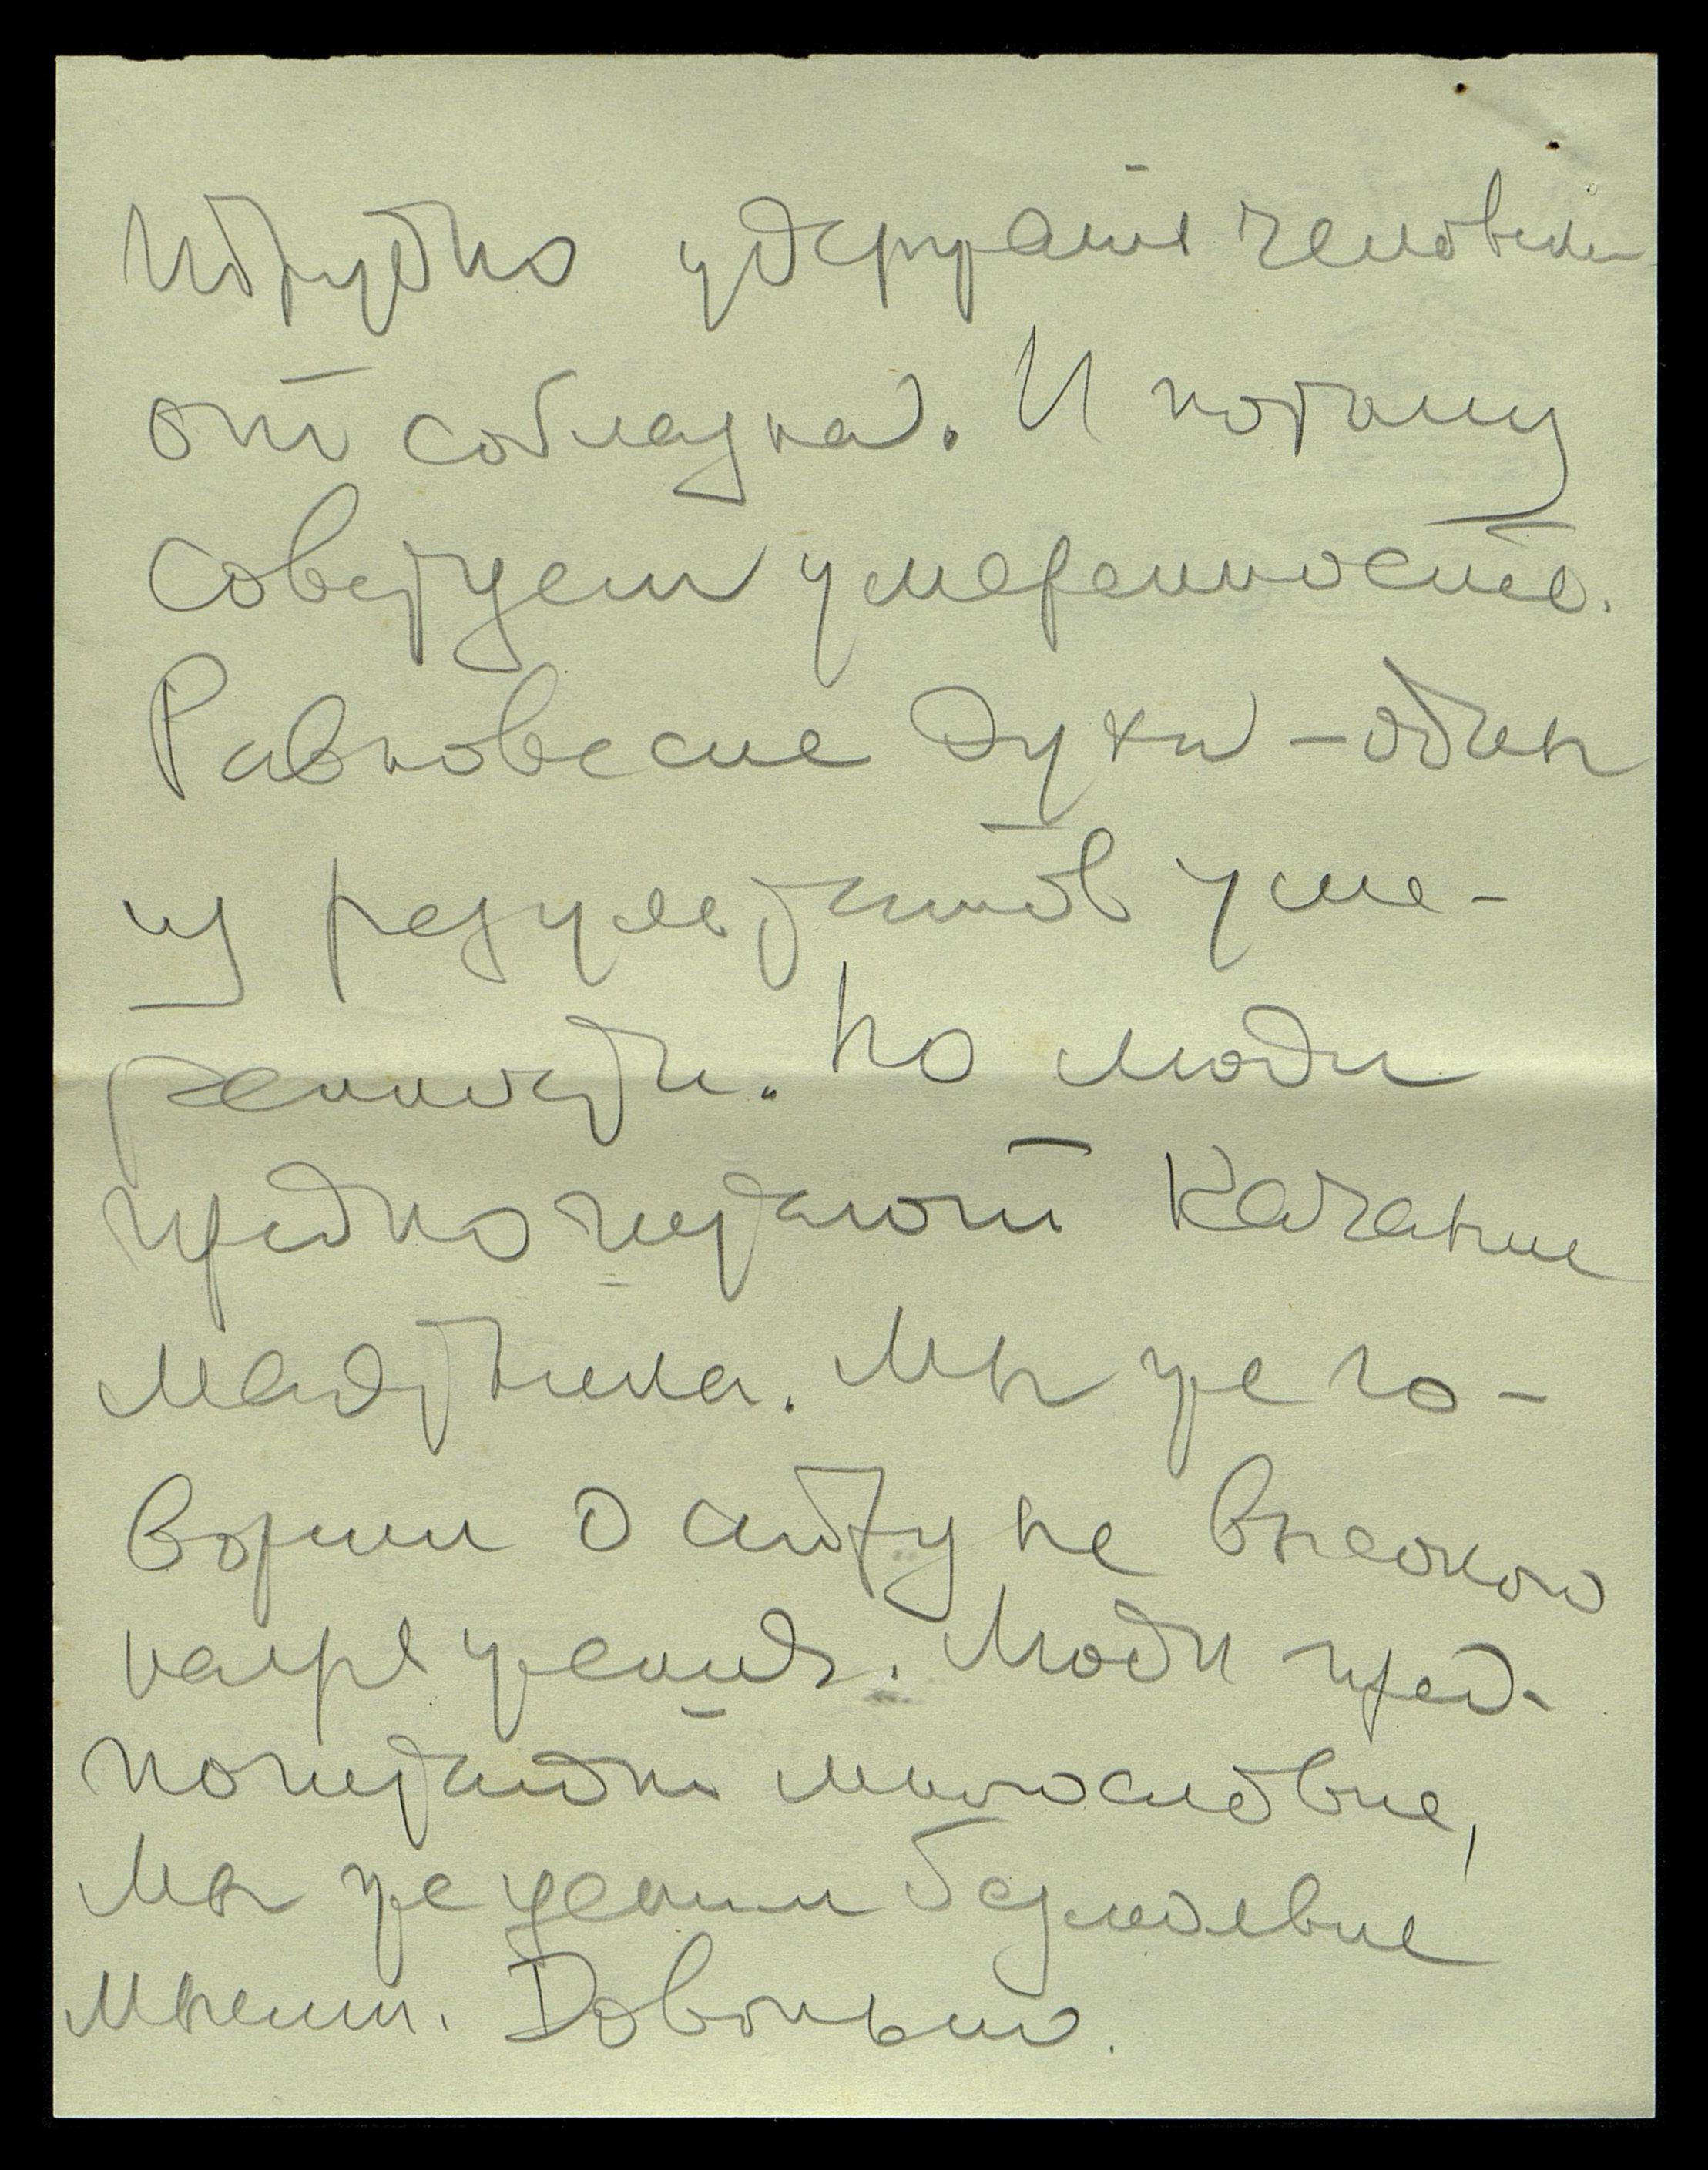 И трудно удержать человека
от соблазна. И потому
советуем умеренность.
Равновесие духа – один
из результатов уме-
ренности. Но люди
предпочитают качание
маятника. Мы же го-
ворим о струне высокого
напряжения. Люди пред-
почитают многословие,
Мы же ценим безмолвие
мысли. Довольно.